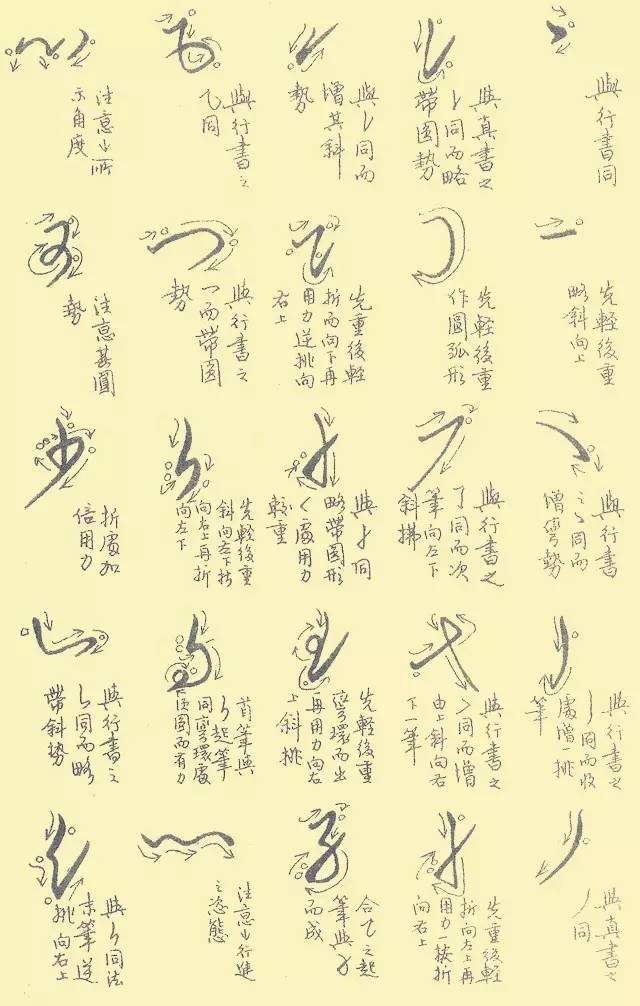 與行書同
與真書之
㇙同而略
帶圓勢
與㇙同而
增其斜
勢
與行書之
乙同
注意㇀所
示角度
先輕後重
略斜向上
先輕後重
作圓弧形
先重後輕
折而向下再
用力逆挑向
右上
與行書之
乛而帶圓
勢
注意其圓
勢
與行書
之㇏同而
增彎勢
與行書之
了同而次
筆向左下
斜拂
同
略帶圓形
く處用力
較重
先輕後重
斜向左下折
向右上再折
向左下
折處加
倍用力
與行書之
丿同而收
處增一挑
筆
與行書之
同而增
由上斜向右
下一筆
先輕後重
彎環而出
再用力向右
上斜挑
首筆與
起筆
同彎環處
須圓而有力
與行書之
㇙同而略
帶斜勢
與真書之
丿同
先重後輕
折向左上再
用力一按折
向右上
合乙之起
筆與
而成
注意㇀行進
之姿態
與㇉同法
末筆逆
挑向右上